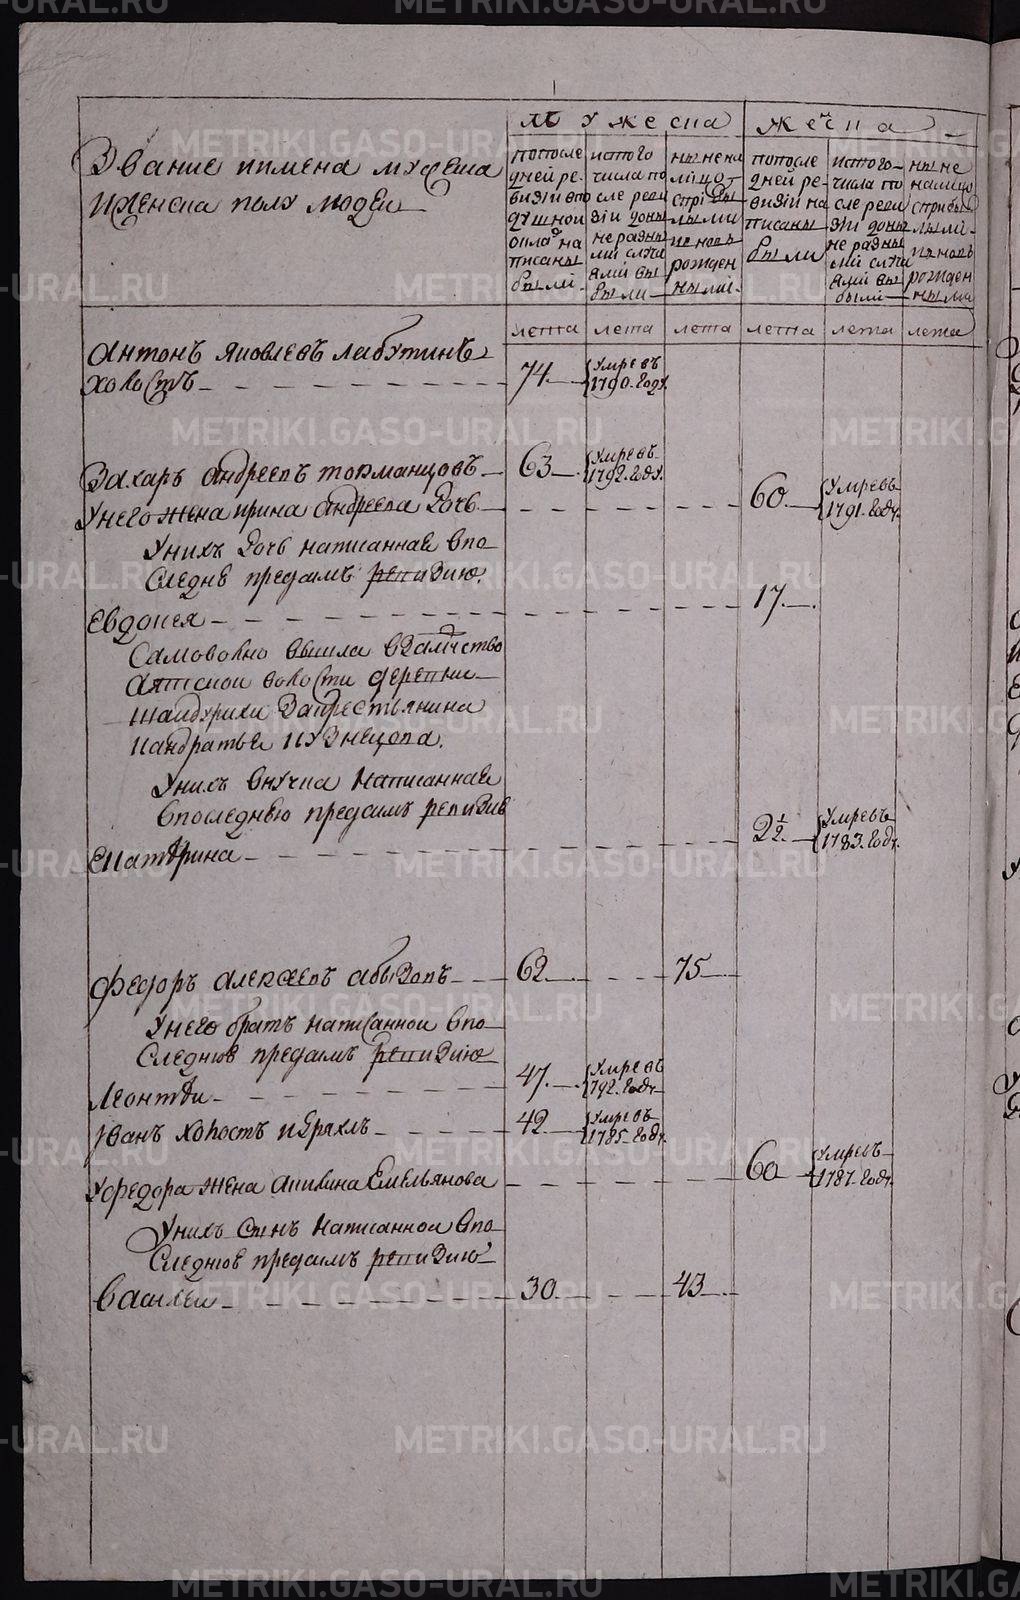 Звание иимена мужеска
иженска полу людей
Мужеска
Женска
попосле
дней ре-
визии впо
душной
оклад на
писаны
были.
истого
числа по
сле реви
зіи доны
не разны
ми случа
ями вы
были
ныне на
лицо-
сприбы
лыми
иновь
рожден
ными.
попосле
дней ре-
визии на
писаны
были
истого-
числа по
сле реви
зіи доны
не разны
ми случа
ями вы
были
ны не
налицо
сприбы
лыми-
иновь
рожден
ными
лета лета лета лета лета лета
Антонъ Яковлевъ Лабутинъ
холостъ 74 умревъ 1790. году.
Захаръ Андреевъ Токманцовъ 63 умревъ 1792. году.
Унего жена ирина Андреева дочь 60 умревъ 1791. году.
Унихъ дочь написанная впо
следнѣ предсимъ ревизию.
Евдокея 17.
Самовольно вышла взамужство
Аятской волости деревни
Шайдурихи закрестьянина
Кандратья Кузнецова.
Унихъ внучка написанная
впоследнѣю предсимъ ревизию
Екатѣрина 2 1/2 умревъ 1783. году.
Федоръ Алексеевъ Абызовъ 62 75
Унего братъ написанной впо
следнюю предсимъ ревизию
Леонтѣи 47. умревъ 1792. году
Іванъ холостъ идряхлъ 42 умревъ 1785. году.
Уфедора жена Акилина Емельянова 60 умревъ 1787. году.
Унихъ сынъ написанной впо
следнюю предсимъ ревизию
Василеи 30 43
METRIKI.GASO-URAL.RU